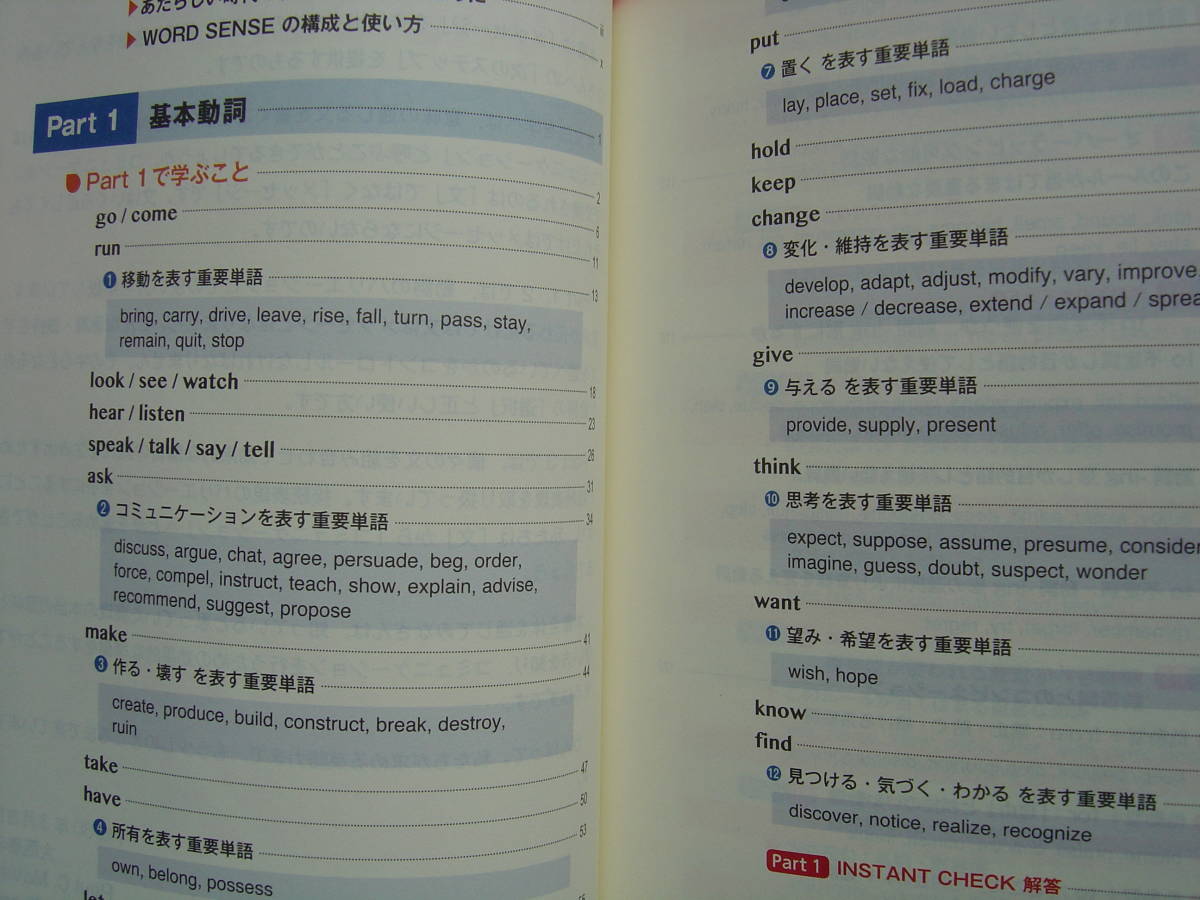 WORD SENSE の構成と使い方
x
Part 1 基本動詞 1
Part 1で学ぶこと 2
go / come 6
run 11
❶ 移動を表す重要単語 13
bring, carry, drive, leave, rise, fall, turn, pass, stay,
remain, quit, stop
look / see / watch 18
hear / listen 23
speak / talk / say / tell 26
ask 31
❷ コミュニケーションを表す重要単語 34
discuss, argue, chat, agree, persuade, beg, order,
force, compel, instruct, teach, show, explain, advise,
recommend, suggest, propose
make 41
❸ 作る・壊す を表す重要単語 44
create, produce, build, construct, break, destroy,
ruin
take 47
have 50
❹ 所有を表す重要単語 53
own, belong, possess
put
❼ 置く を表す重要単語
lay, place, set, fix, load, charge
hold
keep
change
❽ 変化・維持を表す重要単語
develop, adapt, adjust, modify, vary, improve,
increase / decrease, extend / expand /
give
❾ 与える を表す重要単語
provide, supply, present
think
❿ 思考を表す重要単語
expect, suppose, assume, presume, consider
imagine, guess, doubt, suspect, wonder
want
⓫ 望み・希望を表す重要単語
wish, hope
know
find
⓬ 見つける・気づく・わかる を表す重要単語
discover, notice, realize, recognize
Part 1 INSTANT CHECK 解答